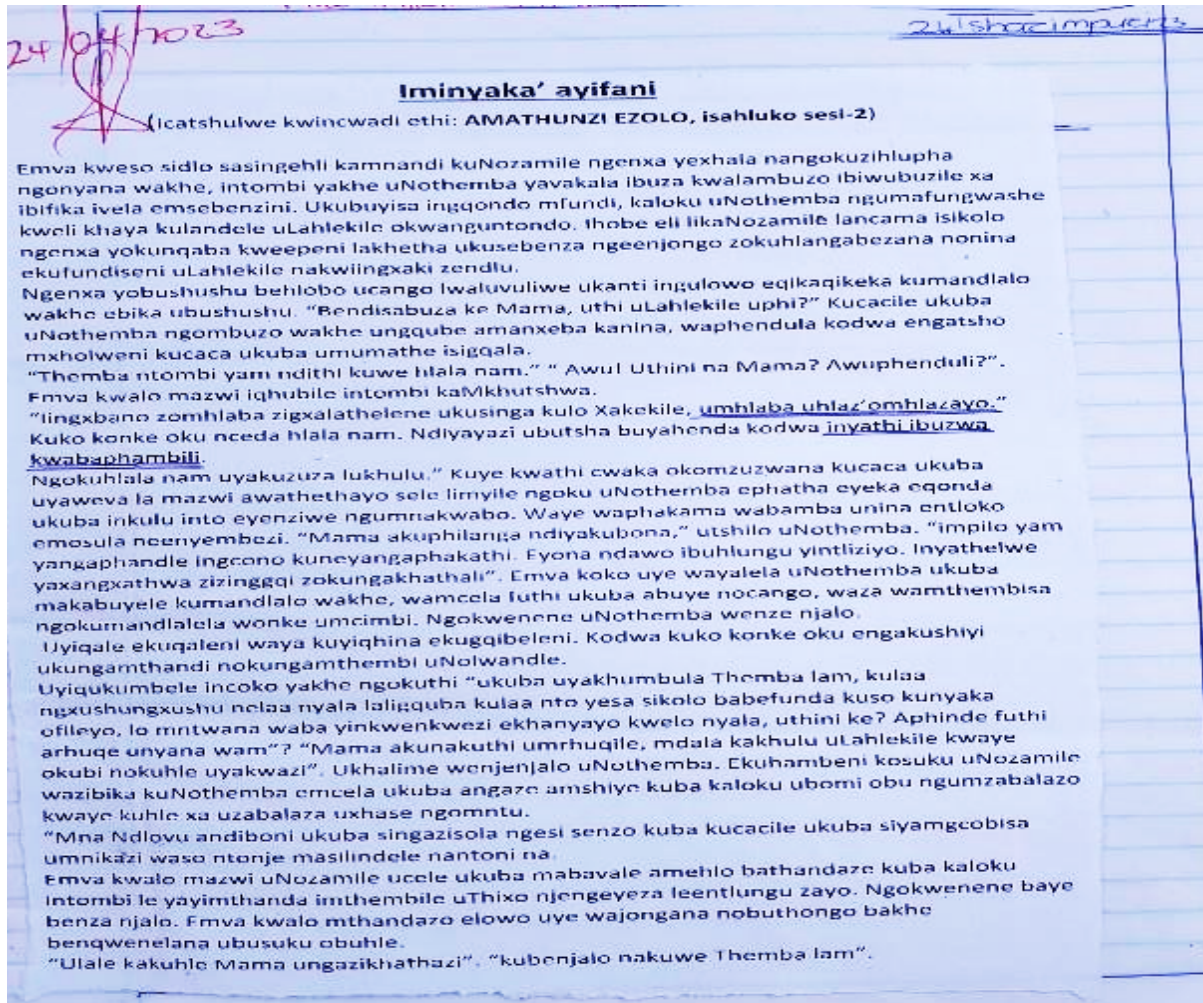 24/04/2023
Iminyaka' ayifani
(icatshulwe kwincwadi ethi: AMATHUNZI EZOLO, isahluko sesi-2)
Emva kweso sidlo sasingehli kamnandi kuNozamile ngenxa yexhala nangokuzihlupha
ngonyana wakhe, intombi yakhe uNothemba yavakala ibuza kwalambuzo ibiwubuzile xa
ibifika ivela emsebenzini. Ukubuyisa ingqondo mfundi, kaloku uNothemba ngumafungwashe
kweli khaya kulandele uLahlekile okwanguntondo. Ihobe eli likaNozamile lancama isikolo
ngenxa yokunqaba kweepeni lakhetha ukusebenza ngeenjongo zokuhlangabezana nonina
ekufundiseni uLahlekile nakwiingxaki zendlu.
Ngenxa yobushushu behlobo ucango lwaluvuliwe ukanti ingulowo eqikaqikeka kumandlalo
wakhe ebika ubushushu. "Bendisabuza ke Mama, uthi uLahlekile uphi?" Kucacile ukuba
uNothemba ngombuzo wakhe ungqube amanxeba kanina, waphendula kodwa engatsho
mxholweni kucaca ukuba umumathe isigqala.
"Themba ntombi yam ndithi kuwe hlala nam." " Awu! Uthini na Mama? Awuphenduli?".
Emva kwalo mazwi iqhubile intombi kaMkhutshwa.
"Iingxbano zomhlaba zigxalathelene ukusinga kulo Xakekile, umhlaba uhlaz'omhlazayo."
Kuko konke oku nceda hlala nam. Ndiyayazi ubutsha buyahenda kodwa inyathi ibuzwa
kwabaphambili.
Ngokuhlala nam uyakuzuza lukhulu." Kuye kwathi cwaka okomzuzwana kucaca ukuba
uyaweva la mazwi awathethayo sele limyile ngoku uNothemba ephatha eyeka eqonda
ukuba inkulu into eyenziwe ngumnakwabo. Waye waphakama wabamba unina entloko
emosula neenyembezi. "Mama akuphilanga ndiyakubona," utshilo uNothemba. "impilo yam
yangaphandle ingcono kuneyangaphakathi. Eyona ndawo ibuhlungu yintliziyo. Inyathelwe
yaxangxathwa zizinggqi zokungakhathali". Emva koko uye wayalela uNothemba ukuba
makabuyele kumandlalo wakhe, wamcela futhi ukuba abuye nocango, waza wamthembisa
ngokumandlalela wonke umcimbi. Ngokwenene uNothemba wenze njalo.
Uyiqale ekuqaleni waya kuyiqhina ekugqibeleni. Kodwa kuko konke oku engakushiyi
ukungamthandi nokungamthembi uNolwandle.
Uyiqukumbele incoko yakhe ngokuthi "ukuba uyakhumbula Themba lam, kulaa
ngxushungxushu nelaa nyala laligquba kulaa nto yesa sikolo babefunda kuso kunyaka
ofileyo, lo mntwana waba yinkwenkwezi ekhanyayo kwelo nyala, uthini ke? Aphinde futhi
arhuqe unyana wam"? "Mama akunakuthi umrhuqile, mdala kakhulu uLahlekile kwaye
okubi nokuhle uyakwazi". Ukhalime wenjenjalo uNothemba. Ekuhambeni kosuku uNozamile
wazibika kuNothemba emcela ukuba angaze amshiye kuba kaloku ubomi obu ngumzabalazo
kwaye kuhle xa uzabalaza uxhase ngomntu.
"Mna Ndlovu andiboni ukuba singazisola ngesi senzo kuba kucacile ukuba siyamgcobisa
umnikazi waso ntonje masilindele nantoni na.
Emva kwalo mazwi uNozamile ucele ukuba mabavale amehlo bathandaze kuba kaloku
intombi le yayimthanda imthembile uThixo njengeyeza leentlungu zayo. Ngokwenene baye
benza njalo. Emva kwalo mthandazo elowo uye wajongana nobuthongo bakhe
benqwenelana ubusuku obuhle.
"Ulale kakuhle Mama ungazikhathazi". "kubenjalo nakuwe Themba lam".